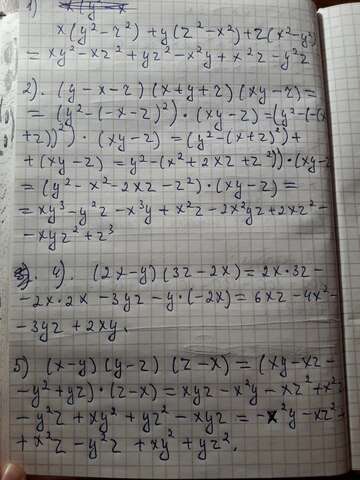 1)
x(y²-z²)+y(z²-x²)+z(x²-y²)
= xy²-xz²+yz²-x²y+x²z-y²z
2). (y-x-z)(x+y+z)(xy-z)=
= (y²-(-x-z)²)·(xy-z)=(y²-(-(x
+z))²)·(xy-z)=(y²-(x+z)²)+
+(xy-z)=y²-(x²+2xz+z²))·(xy-z
=(y²-x²-2xz-z²)·(xy-z)=
=xy³-y²z-x³y+x²z-2x²yz+2xz²-
-xyz²+z³
4). (2x-y)(3z-2x)=2x·3z-
-2x·2x-3yz-y·(-2x)=6xz-4x²-
-3yz+2xy.
5) (x-y)(y-z)(z-x)=(xy-xz-
-y²+yz)·(z-x)=xyz-x²y-xz²+x²z
-y²z+xy²+yz²-xyz=-x²y-xz²+
+x²z-y²z+xy²+yz².